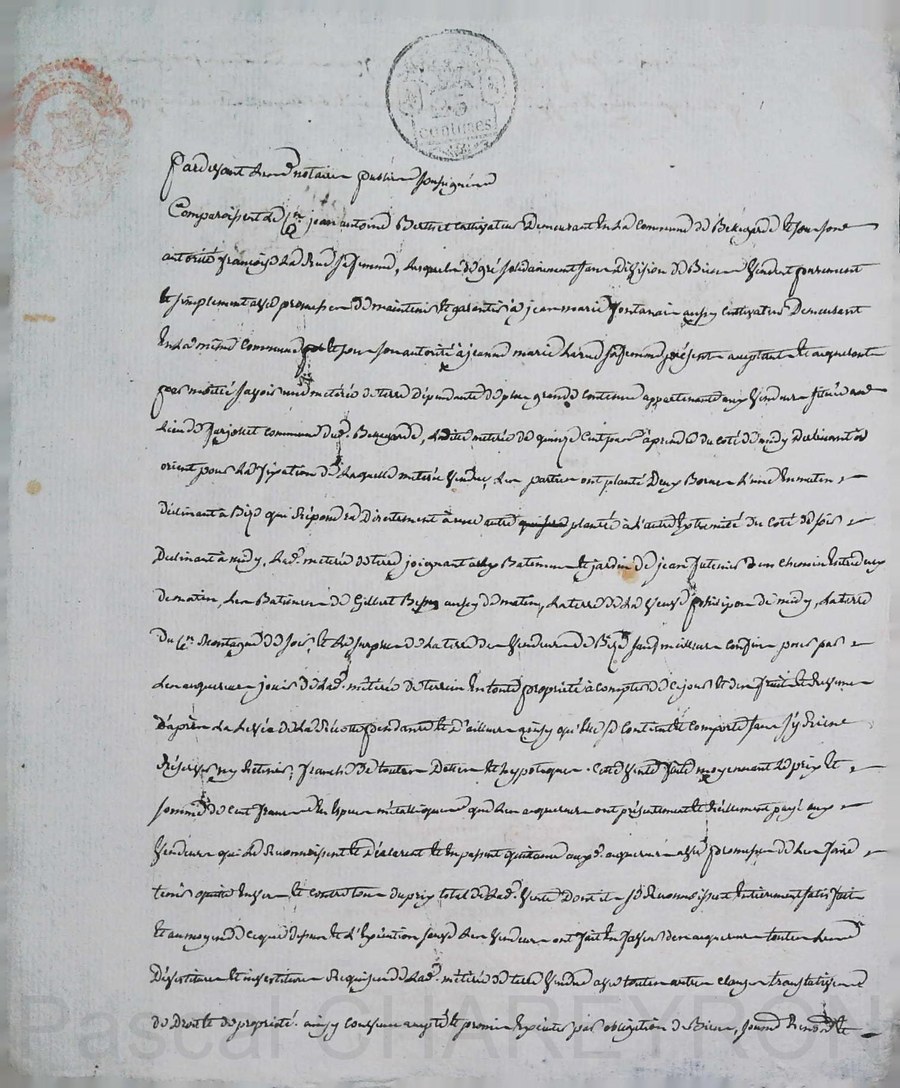 25
centimes
Pardevant les notaires publics soussignés
Comparoissent le Cn jean antoine Berthet cultivateur demeurant en la commune de Beauregard et sous son
autorité françoise La Rue sa femme, lesquels de gré solidairement sans division de Biens vendent purement
et simplement avec promesse de maintenir et garantir à jean marie fontanai aussy cultivateur demeurant
en la même commune et sous son autorité à jeanne marie sa femme présents acceptant et acquerant
par moitié savoir une méterée de terre dépendante de plus grande contenue appartenante aux vendeurs située au
lieu de commune dud. Beauregard, ladite méterée de quinze à prendre du coté de midy declinant à
orient pour la fixation de laquelle méterée vendue, les parties ont planté deux Bornes l'une en matin
déclinant à Bize qui répondra directement à une autre plantée à l'autre extremité du coté de soir
declinant à midy, lad. méterée de terre joignant Batiments et jardin de jean un chemin entre deux
de matin, les Batiments de Gilbert aussy de matin, la terre de la veuve philipon de midy, la terre
du Cn Montagne de soir, et le surplus de la terre des vendeurs de Bize sauf meilleurs confins pour par
les acquereurs jouir de lad. méterée de terrein en toute propriété à compter de ce jour et des fruits et revenus
d'après la levée de la récolte pendante et d'ailleurs ainsy qu'elle se contient et comporte sans s'y rien
réserver ny retenir, franche de toutes dettes et hypoteques. Cette vente faite moyennant le prix et
somme de cent francs en especes métalliques que les acquereurs ont présentement et réellement payé aux
vendeurs qui le reconnoissent et déclarent et en passent quittance auxd. acquereurs avec promesse de les faire
tenir quitte envers et contre tous du prix total de lad. vente dont ils se reconnoissent entierement satisfaits
et au moyen de ce que dessus et l'exécution les vendeurs ont fait en faveur des acquereurs toutes
devestitures et investitures requises de lad. méterée de terre vendue avec toutes autres clauses translatives
de droit et de propriété. ainsy convenu accepté et promis executer par obligation de Biens,
Pascal CHAREYRON